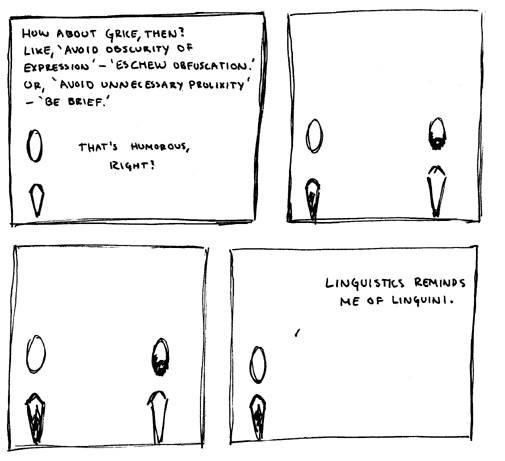 HOW ABOUT GRICE, THEN?
LIKE, 'AVOID OBSCURITY OF
EXPRESSION' – 'ESCHEW OBFUSCATION.'
OR, 'AVOID UNNECESSARY PROLIXITY'
– 'BE BRIEF.'
THAT'S HUMOROUS,
RIGHT?
LINGUISTICS REMINDS
ME OF LINGUINI.